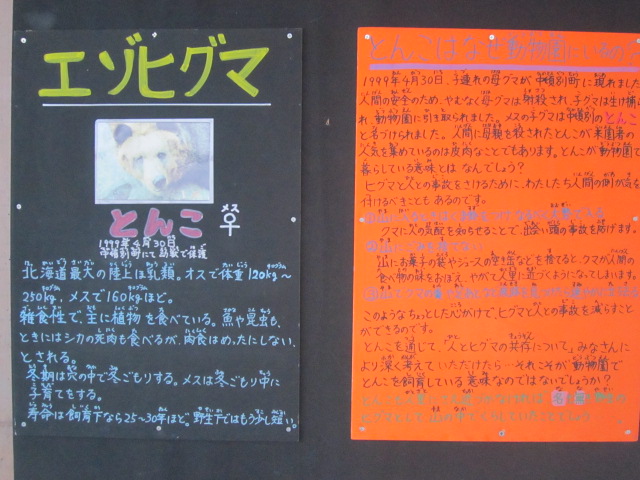 エゾヒグマ
とんこ ♀
メス
1999年4月30日
中頓別町にて幼獣で保護
北海道最大の陸上ほ乳類。オスで体重120kg～
250kg、メスで160kgほど。
雑食性で、主に植物を食べている。魚や昆虫も、
ときにはシカの死肉も食べるが、肉食はめったにしない
とされる。
冬期は穴の中で冬ごもりする。メスは冬ごもり中に
子育てをする。
寿命は飼育下なら25～30年ほど。野生下ではもう少し短い。
とんこはなぜ動物園にいるの?
1999年4月30日、子連れの母グマが中頓別町に現れました
人間の安全のため、やむなく母グマは射殺され、子グマは生け捕
れ動物園に引き取られました。メスの子グマは中頓別のとんこ
と名づけられました。人間に母親を殺されたとんこが来園者の
人気を集めているのは皮肉なことでもあります。とんこが動物園で
暮らしている意味とはなんでしょう?
ヒグマと人との事故をさけるために、わたしたち人間の側が気を
付けるべきこともあるのです。
クマに人の気配を知らせることで、出会い頭の事故を防げます。
山にお菓子の袋やジュースの空き缶などを捨てると、クマが人間の
食べ物の味をおぼえ、やがて人里に近づくようになってしまいます。
このようなちょっとした心がけで、ヒグマと人との事故を減らすこと
ができるのです。
とんこを通じて、「人とヒグマの共存について」みなさんに
より深く考えていただけたら…それこそが動物園で
とんこを飼育している意味なのではないでしょうか?